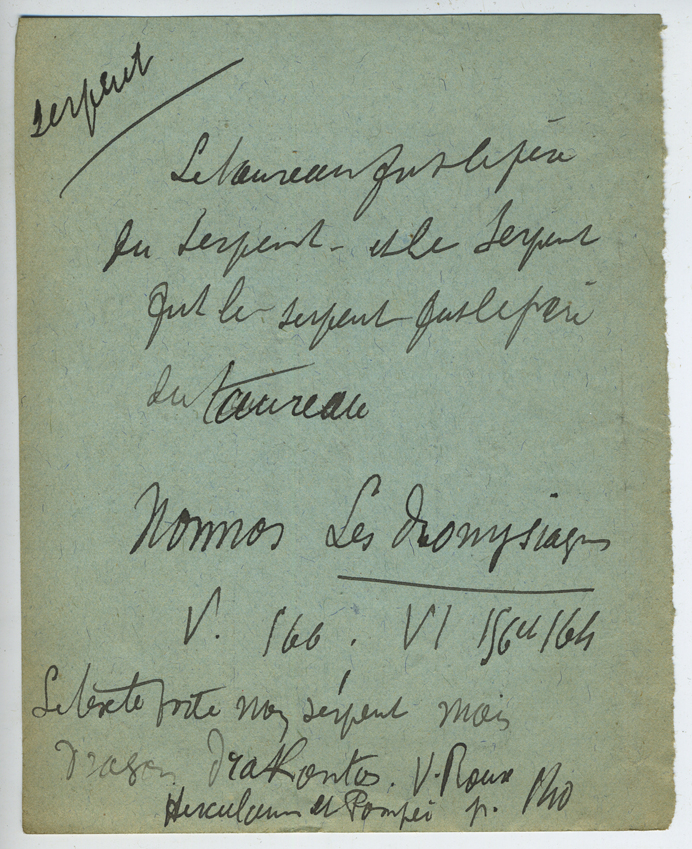 serpent
Le taureau fut le père
du Serpent - et le Serpent
fut le serpent fut le père
du taureau
Nonnos Les Dionysiaques
V. 566. VI 156 et 164
Le texte porte non serpent mais
dragon Drakontos. V. Roux
Herculanum et Pompéi p.